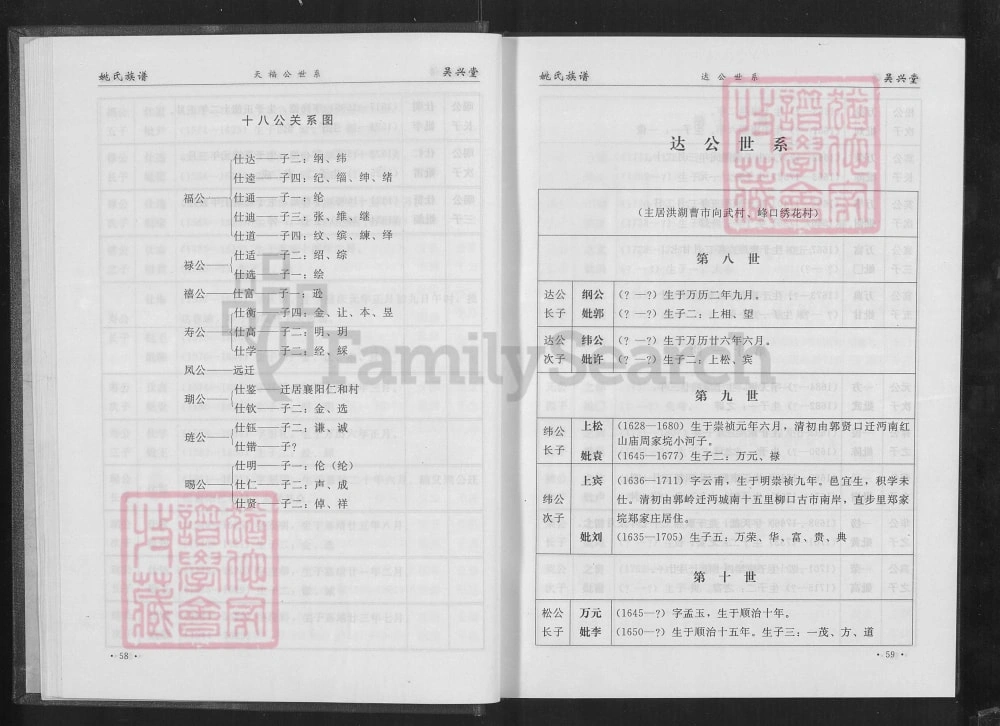 姚氏族谱
天福公世系
吴兴堂
十八公关系图
福公
仕达——子二：纲、纬
仕逵——子四：纪、缁、绅、绪
仕通——子一：纶
仕迪——子三：张、维、继
仕道——子四：纹、缤、練、绎
禄公
仕适——子二：绍、综
仕选——子一：绘
禧公——仕富——子一：逊
寿公
仕衡——子四：金、让、本、昱
仕高——子二：明、玥
仕学——子二：经、綵
凤公——远迁
瑚公
仕鉴——迁居襄阳仁和村
仕钦——子二：金、选
琏公
仕钰——子二：谦、诚
仕锴——子？
赐公
仕明——子一：伦（纶）
仕仁——子二：声、成
仕贤——子二：倬、祥
·58·
姚氏族谱
达公世系
吴兴堂
达公世系
（主居洪湖曹市向武村、峰口绣花村）
第八世
达公 纲公 （？—？）生于万历二年九月。
长子 妣郭 （？—？）生子二：上相、望
达公 纬公 （？—？）生于万历廿六年六月。
次子 妣许 （？—？）生子二：上松、宾
第九世
纬公
长子
上松 （1628—1680）生于崇祯元年六月，清初由郭贤口迁沔南红
山庙周家垸小河子。
妣袁 （1645—1677）生子二：万元、禄
纬公
次子
上宾 （1636—1711）字云甫，生于明崇祯九年。邑宜生，积学未
仕。清初由郭岭迁沔城南十五里柳口古市南岸，直步里郑家
垸郑家庄居住。
妣刘 （1635—1705）生子五：万荣、华、富、贵、典
第十世
松公 万元 （1645—？）字孟玉，生于顺治十年。
长子 妣李 （1650—？）生于顺治十五年。生子三：一茂、方、道
·59·
FamilySearch